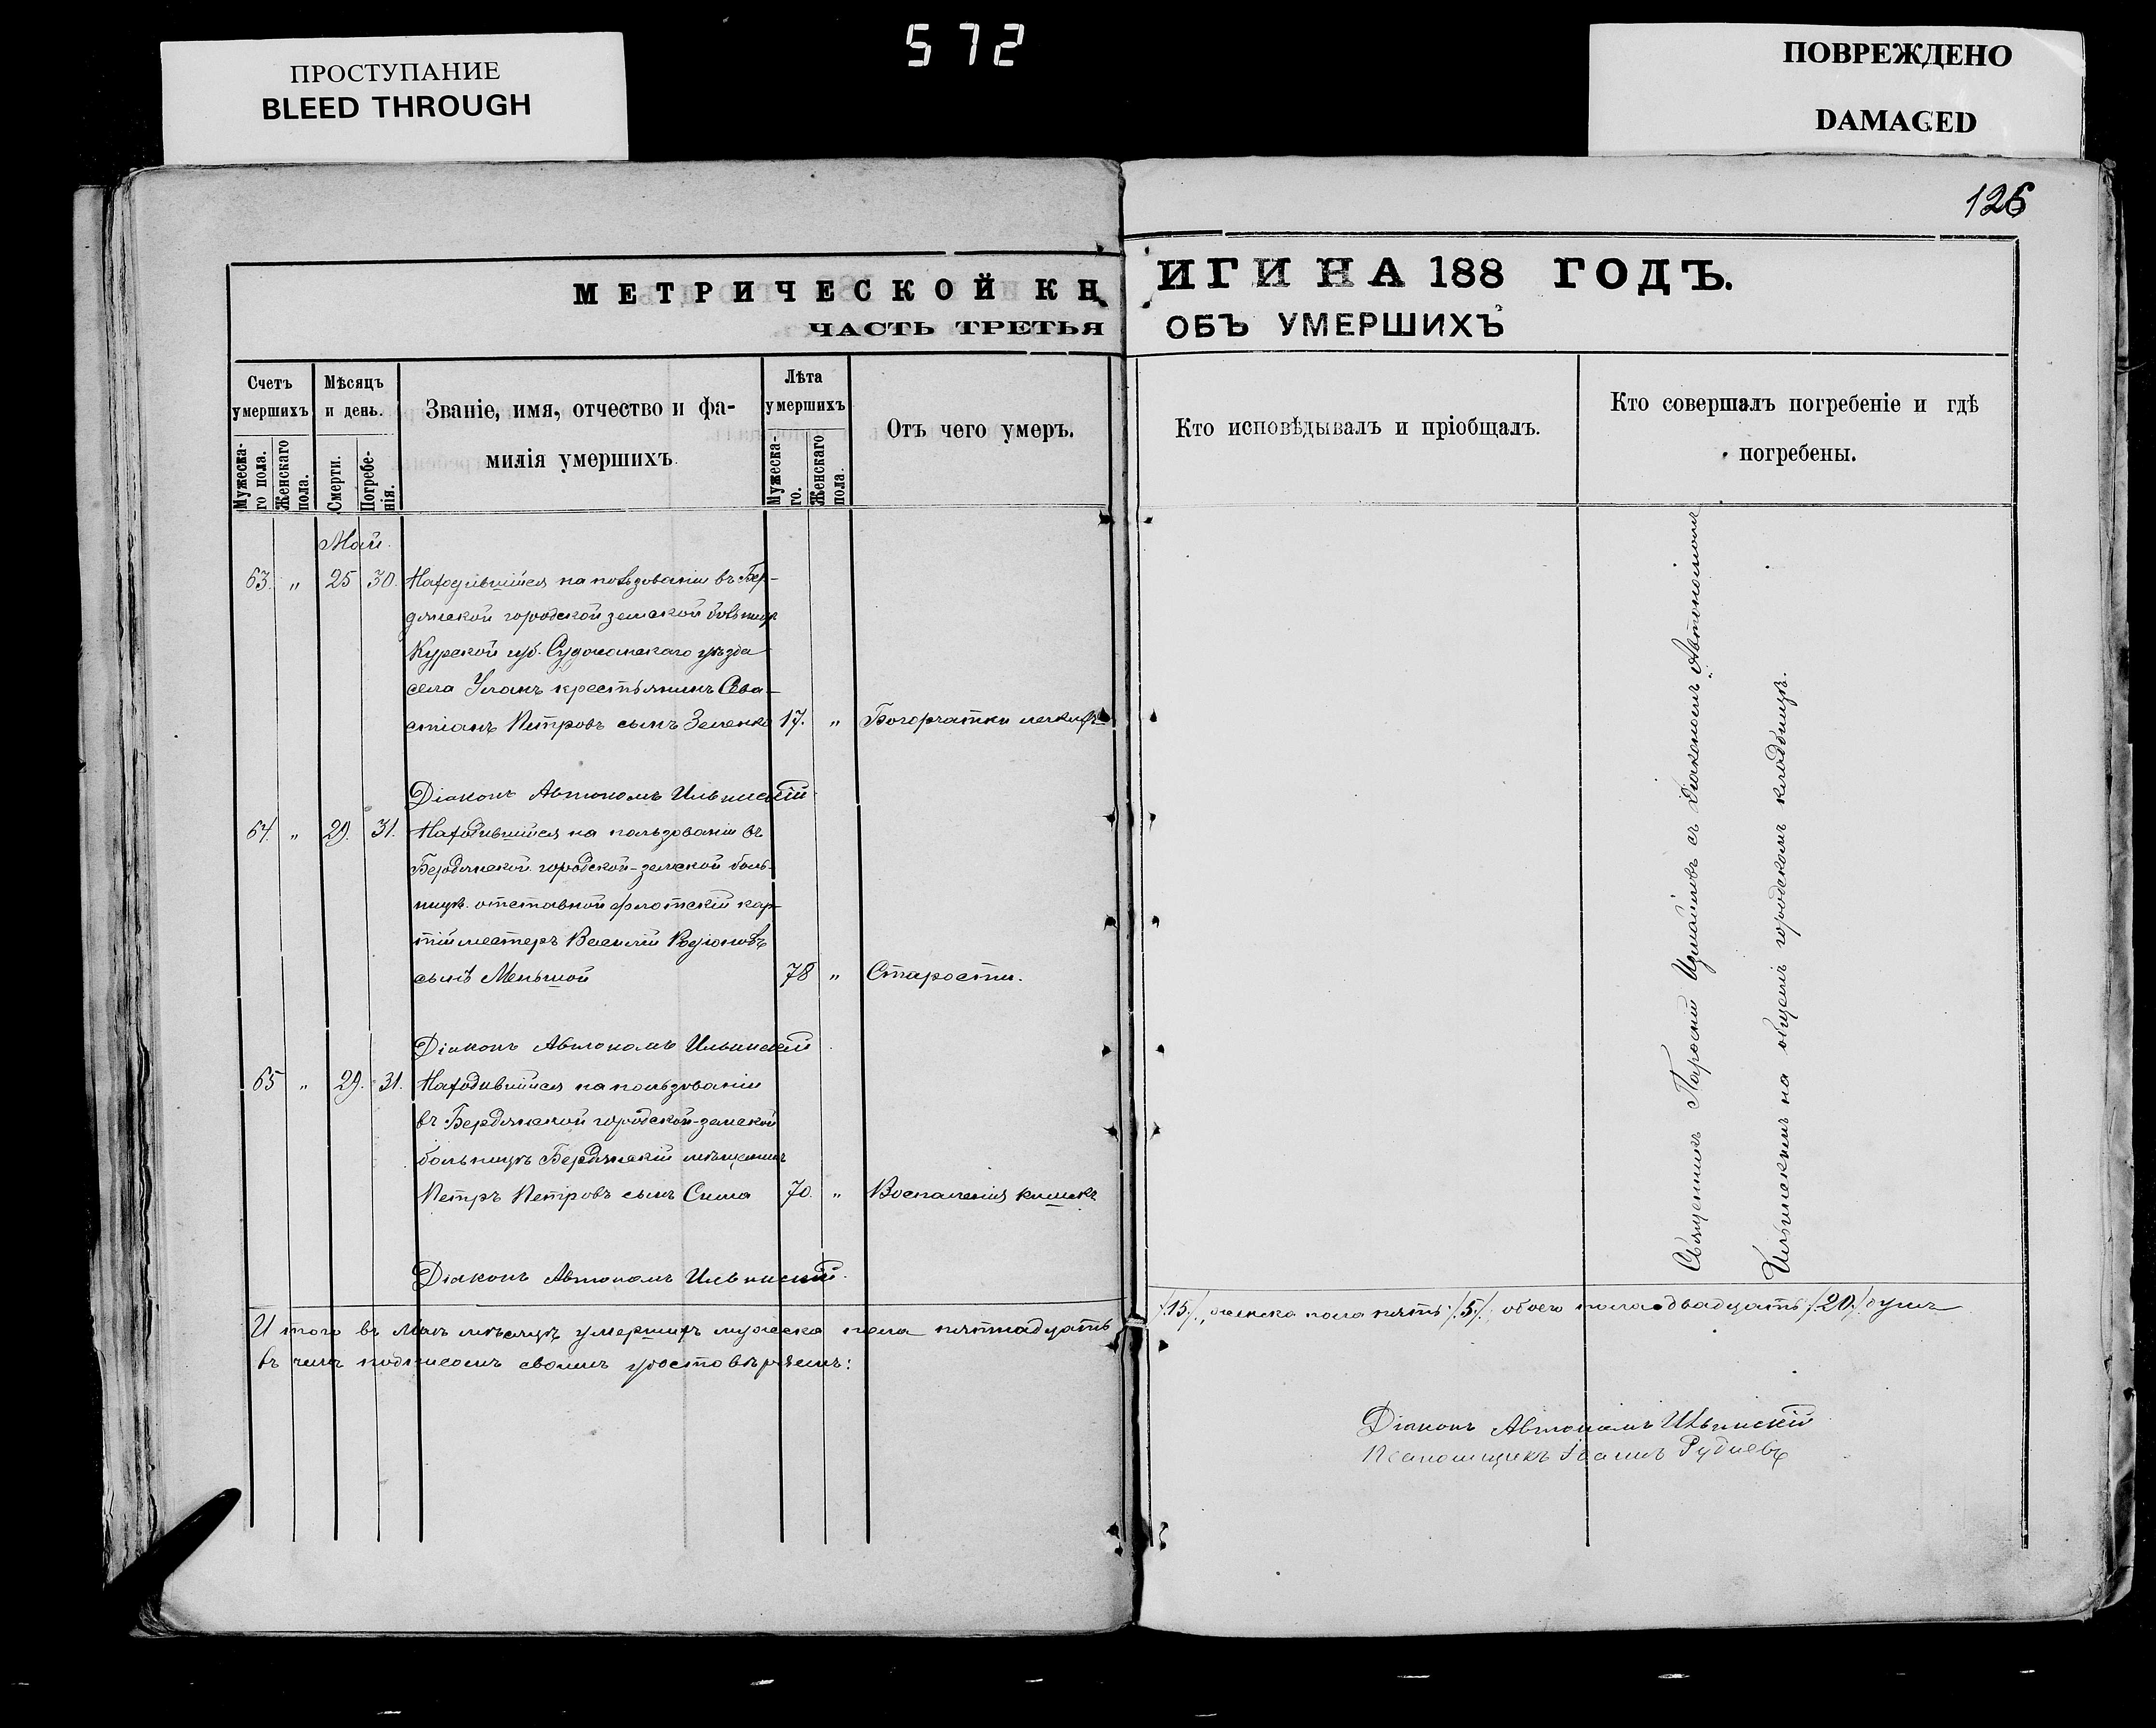 572
ПРОСТУПАНИЕ
BLEED THROUGH
ПОВРЕЖДЕНО
DAMAGED
126
МЕТРИЧЕСКОЙ КН
ИГИ НА 188 ГОДЪ.
ЧАСТЬ ТРЕТЬЯ
ОБЪ УМЕРШИХЪ
Счетъ умершихъ
Мужеска-го пола.
Женскаго пола.
Мѣсяцъ и день.
Смерти.
Погребе-нія.
Званіе, имя, отчество и фа-
милія умершихъ
Лѣта умершихъ
Мужеска-го.
Женскаго пола.
Отъ чего умеръ.
Кто исповѣдывалъ и пріобщалъ.
Кто совершалъ погребеніе и гдѣ
погребены.
Май.
63. „ 25 30. Находившійся на пользованіи въ Бер-
дянской городской земской больницѣ
Курской губ. Суджанскаго уѣзда
села крестьянинъ Сева-
стіанъ Петровъ сынъ Зеленко 17. „ Бугорчатки легкихъ
Діаконъ Автономъ Ильинскій
64. „ 29. 31. Находившійся на пользованіи въ
Бердянской городской-земской боль-
ницѣ отставной флотскій
Василій Родіоновъ
сынъ Меньшой 78 „ Старости.
Діаконъ Автономъ Ильинскій
65 „ 29. 31. Находившійся на пользованіи
въ Бердянской городской-земской
больницѣ Бердянскій мѣщанинъ
Петръ Петровъ сынъ Сима 70. „ Воспаленія кишекъ
Діаконъ Автономъ Ильинскій.
Священникъ Измайловъ съ Діакономъ Автономомъ
Ильинскимъ на общемъ городскомъ кладбищѣ.
Итого въ Маѣ мѣсяцѣ умершихъ мужеска пола пятнадцать /.15./, женска пола пять /.5./, обоего пола двадцать /.20./ душъ
въ чемъ подписомъ своимъ удостовѣряемъ:
Діаконъ Автономъ Ильинскій
Псаломщикъ Іоаннъ Рудневъ